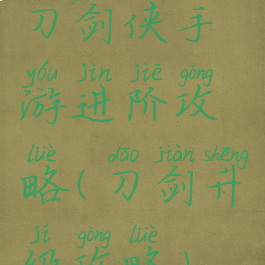 刀剑侠手
yóu jìn jiē gōng
游进阶攻
lüè dāo jiàn shēng
略(刀剑升
jí gōng lüè
级攻略)